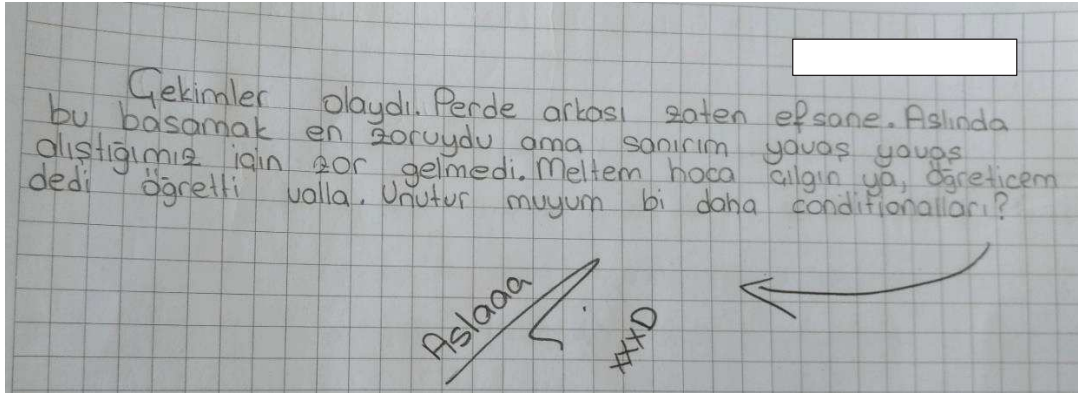 Çekimler olaydı. Perde arkası zaten efsane. Aslında
bu basamak en zoruydu ama sanırım yavaş yavaş
alıştığımız için zor gelmedi. Meltem hoca çılgın ya, öğreticem
dedi öğretti valla. Unutur muyum bi daha conditionalları?
Aslaaa
xxxD